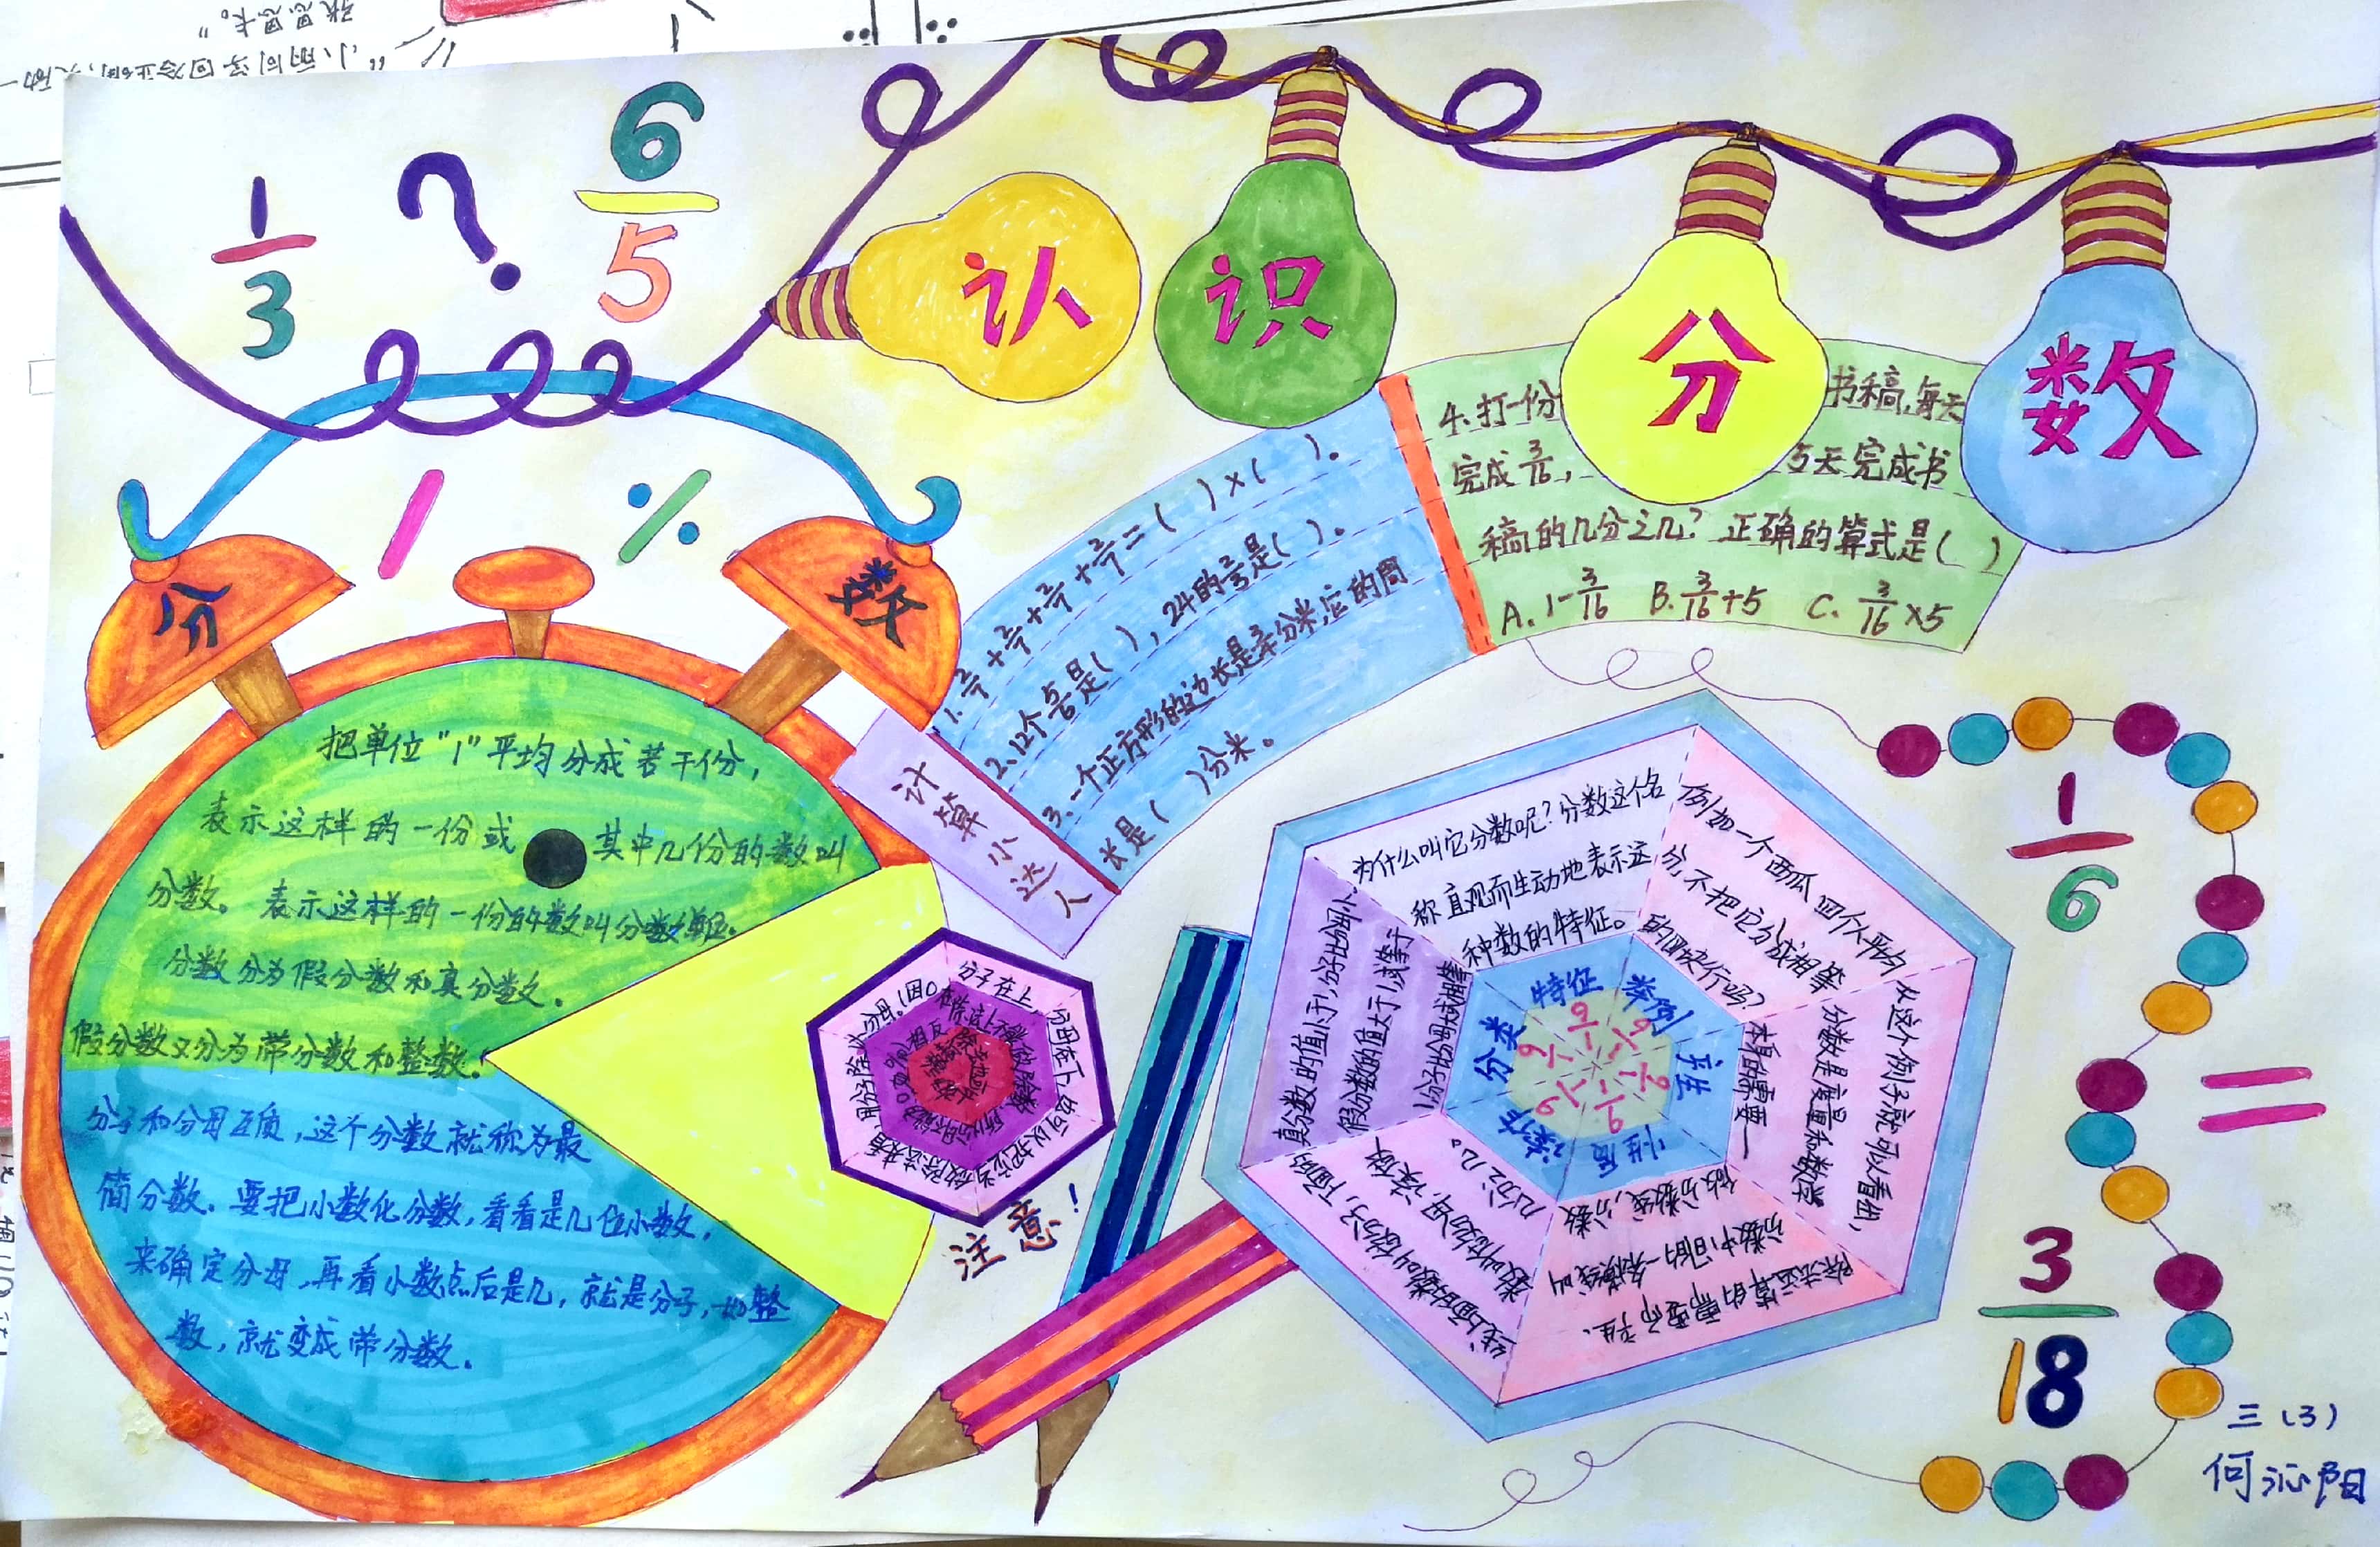 认识分数
1/3
?
6/5
/
%
分
数
把单位"1"平均分成若干份,
表示这样的一份或 其中几份的数叫
分数。表示这样的一份的数叫分数单位.
分数分为假分数和真分数.
假分数又分为带分数和整数.
分子和分母互质,这个分数就称为最
简分数.要把小数化分数,看看是几位小数,
来确定分母,再看小数点后是几,就是分子,如整
数,就变成带分数.
计算小达人
2.12个5/6是( ),24的2/3是( ).
长是( )分米。
4.打一份 书稿,每天
完成3/16, 5天完成书
稿的几分之几?正确的算式是( )
A.1-3/16 B.3/16+5 C.3/16×5
分子在上,
注意!
特征
为什么叫它分数呢?分数这个名
称直观而生动地表示这
种数的特征。
举例
例如一个西瓜四个人平均
分,不把它分成相等
的四块行吗?
产生
从这个例子就可以看出,
分数是度量和数学
本身的需要一
除法运算的需要而产生.
性质
分数中间的一条横线叫
做分数线,分数
读作
线上面的数叫做分子,下面的
数叫做分母,读作
几分之几。
分类
真分数的值小于1,分子比分母小.
假分数的值大于1,或等于
1,分子比分母大或相等
1/6
=
3/18
三(3)
何沁阳